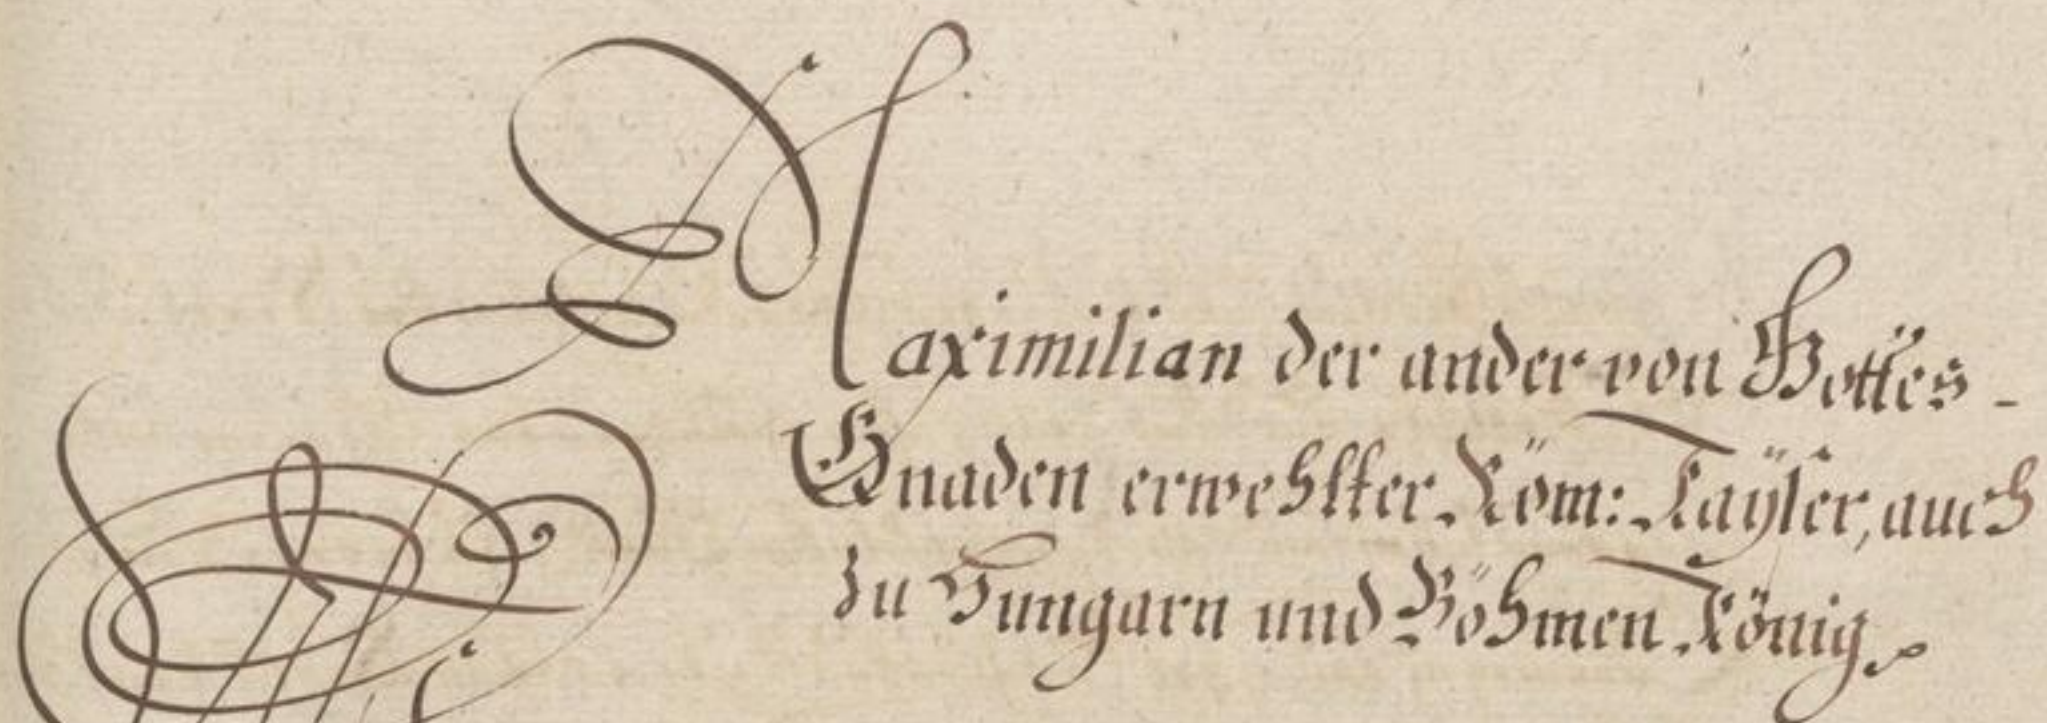 Maximilian der ander von Gottes-
Gnaden erwehlter Röm: Kayser, auch
zu Hungarn und Böhmen König.